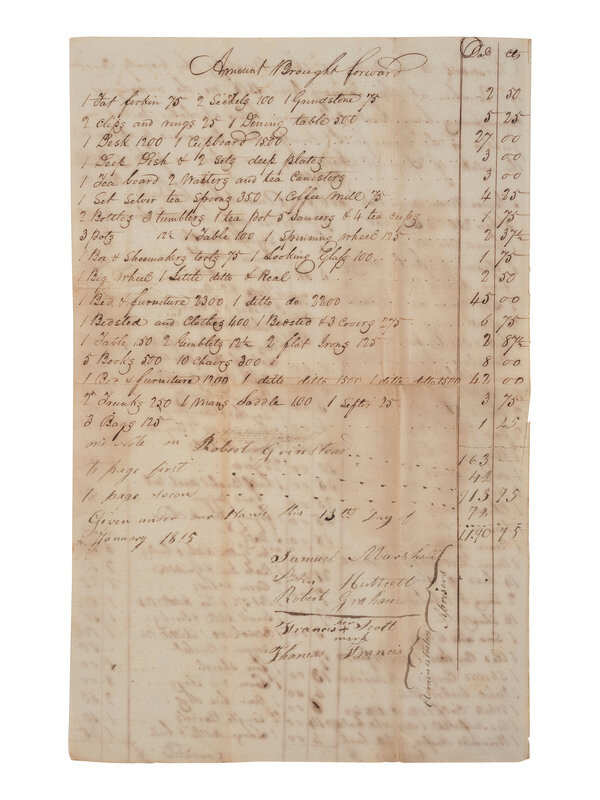 Dols cts
Amount Brought forward
1 Fat ferkin 75 2 Sickels 100 1 Grindstone 75 2 50
2 clips and rings 25 1 Dining table 500 5 25
1 Desk 1200 1 Cupboard 1500 27 00
1 Deep Dish & 2 Setz deep platez 3 00
1 Tea board 2 Waiters and tea Canisters 3 00
1 Set Silver tea spoons 350 1 Coffee mill 75 4 25
2 Bottles 3 tumblers 1 tea pot 5 Saucers & 4 tea cups 1 75
3 potz 12½ 1 Table 100 1 Spinning wheel 125 2 37½
1 Box & Shoemakers tools 75 1 Looking Glass 100 1 75
1 Big wheel 1 Little ditto & Real 2 50
1 Bed & furniture 2300 1 ditto do 2200 45 00
1 Bedsted and Clothes 400 1 Bedsted & 3 Covers 275 6 75
1 Table 150 2 Gimblets 12½ 2 flat Irons 125 2 87½
5 Books 500 10 Chairs 300 8 00
1 Bed & furniture 1200 1 ditto ditto 1500 1 ditto ditto 1500 42 00
2 Trunks 250 1 Mans Saddle 100 1 Sifter 25 3 75
3 Bags 125 1 25
one Note on Robert Grinstead
163
to page first 42
to page second 913 75
Given under our Hands this 13th Day of 72
January 1815 1190 75
Samuel Marshall
Robert Graham
Francis his x mark Scott
Thomas Francis